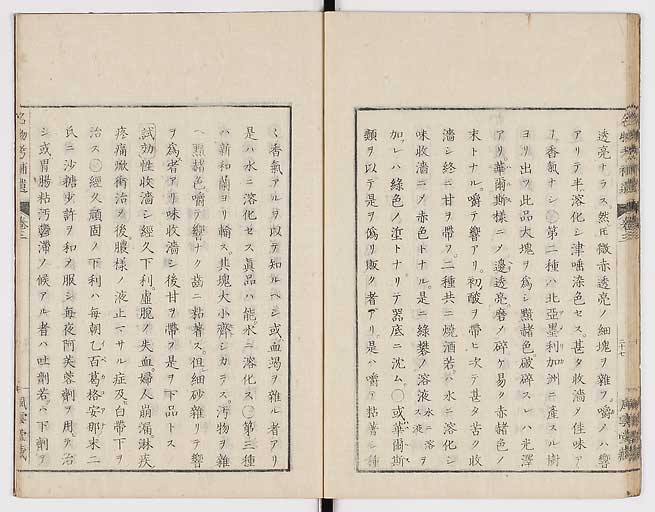 透亮ナラス然𪜈微赤透亮ノ細塊ヲ雜フ嚼ノハ響
アリテ半溶化シ津唾染色セス甚タ收濇ノ佳味ア
リ香氣ナシ○第二種ハ北亞墨利加洲ニ產スル樹
ヨリ出ツ此品大塊ヲ爲シ黯赭色破碎スレハ光澤
アリ華爾斯樣ニノ邊透亮磨ノ碎ケ易ク赤赭色ノ
末トナル嚼テ響アリ初酸ヲ帶ヒ次テ甚タ苦ク收
濇シ終ニ甘ヲ帶フ二種共ニ燒酒若ハ水ニ溶化シ
味收濇ニノ赤色トナル是ニ綠礬ノ溶液水ニ溶スル液ヲ
加レハ綠色ノ堊トナリテ器底ニ沈ム○或華爾斯
類ヲ以テ是ヲ僞リ販ク者アリ是ハ嚼テ粘著シ種
々香氣アルヲ以テ知ルヘシ或血竭ヲ雜ル者アリ
是ハ水ニ溶化セス眞品ハ能水ニ溶化ス○第三種
ハ新和蘭ヨリ輸ス其塊大小齊シカラス汚物ヲ雜
ヘ黯赭色嚼テ響ナク齒ニ粘著ス但細砂雜リテ響
ヲ爲者アリ味收濇シ後甘ヲ帶フ是ヲ下品トス
試効性收濇シ經久下利虛脫ノ失血婦人崩漏淋疾
疼痛瘀衝治ノ後膿樣ノ液止マサル症及白帶下ヲ
治ス○經久頑固ノ下利ハ每朝乙百葛格安那末二
氏ニ沙糖少許ヲ和ノ服シ每夜阿芙蓉劑ヲ用フ治
シ或胃腸粘汚鬱滯ノ候アル者ハ吐劑若ハ下劑ヲ
名物考補遺
卷三
二十七
風雲堂藏